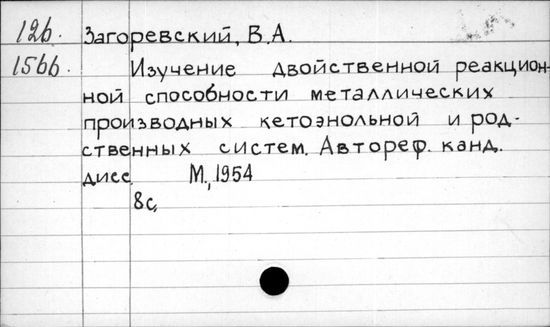 12б. Загоревский, В.А.
15бб. Изучение двойственной реакцион-
ной способности металлических
производных кетоэнольной и род-
ственных систем. Автореф. канд.
дисс. М., 1954
8с.